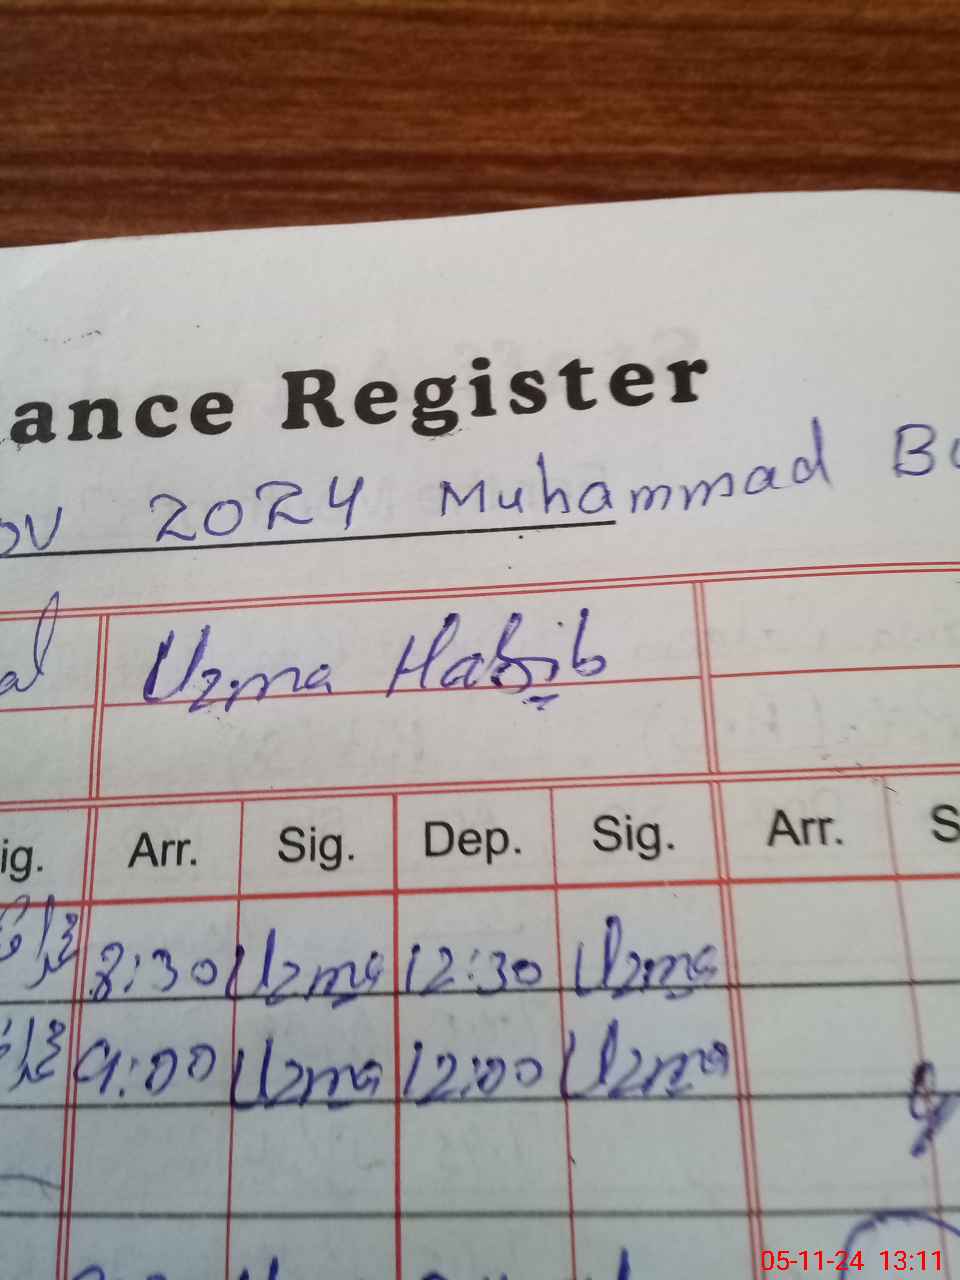 ance Register
ov 2024 Muhammad B
al Uzma Habib
ig. Arr. Sig. Dep. Sig. Arr. S
8:30 Uzma 12:30 Uzma
9:00 Uzma 12:00 Uzma
05-11-24 13:11